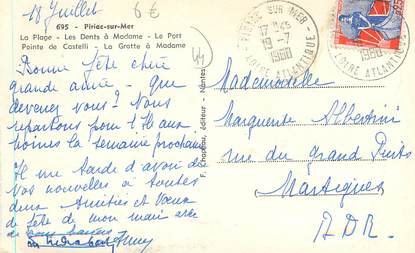 18 Juillet
6€
695 - Piriac-sur-Mer
La Plage - Les Dents à Madame - Le Port
Pointe de Castelli - La Grotte à Madame
Bonne fête chère
grande amie - que
devenez vous? Nous
repartons pour l'
moins la semaine prochaine
Il me tarde d'avoir de
vos nouvelles à toutes
deux Amitiés et Vœux
de fête de mon mari avec
F. Chapeau, éditeur - Nantes
PIRIAC SUR MER
17-45
19-7
1960
LOIRE ATLANTIQUE
1960
LOIRE ATLANTIQUE
Mademoiselle
Marguerite Albertini
rue du Grand Puits
Martigues
B.D.R.